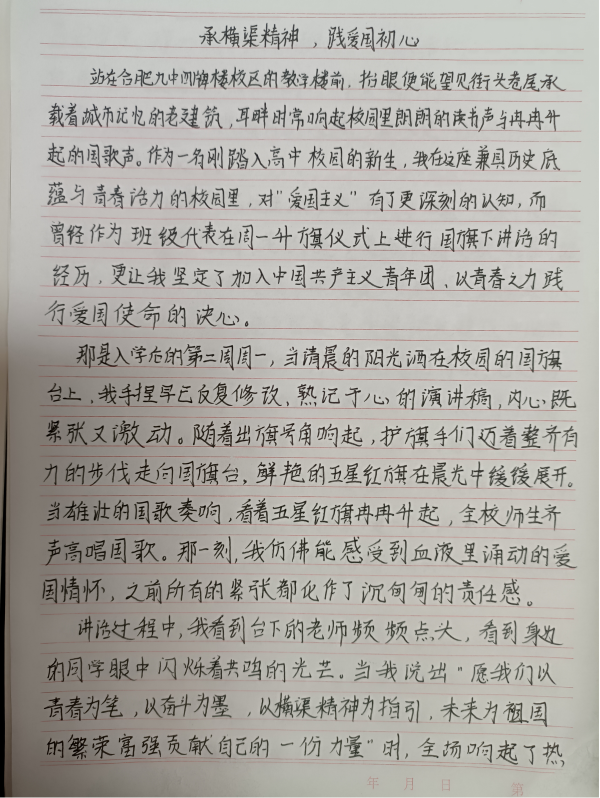 承横渠精神，践爱国初心
站在合肥九中四牌楼校区的教学楼前，抬眼便能望见街头巷尾承
载着城市记忆的老建筑，耳畔时常响起校园里朗朗的读书声与冉冉升
起的国歌声。作为一名刚踏入高中校园的新生，我在这座兼具历史底
蕴与青春活力的校园里，对“爱国主义”有了更深刻的认知，而
曾经作为班级代表在周一升旗仪式上进行国旗下讲话的
经历，更让我坚定了加入中国共产主义青年团、以青春之力践
行爱国使命的决心。
那是入学后的第二周周一，当清晨的阳光洒在校园的国旗
台上，我手捏早已反复修改、熟记于心的演讲稿，内心既
紧张又激动。随着出旗号角响起，护旗手们迈着整齐有
力的步伐走向国旗台，鲜艳的五星红旗在晨光中缓缓展开。
当雄壮的国歌奏响，看着五星红旗冉冉升起，全校师生齐
声高唱国歌。那一刻，我仿佛能感受到血液里涌动的爱
国情怀，之前所有的紧张都化作了沉甸甸的责任感。
讲话过程中，我看到台下的老师频频点头，看到身边
的同学眼中闪烁着共鸣的光芒。当我说出“愿我们以
青春为笔，以奋斗为墨，以横渠精神为指引，未来为祖国
的繁荣富强贡献自己的一份力量”时，全场响起了热
年 月 日 第